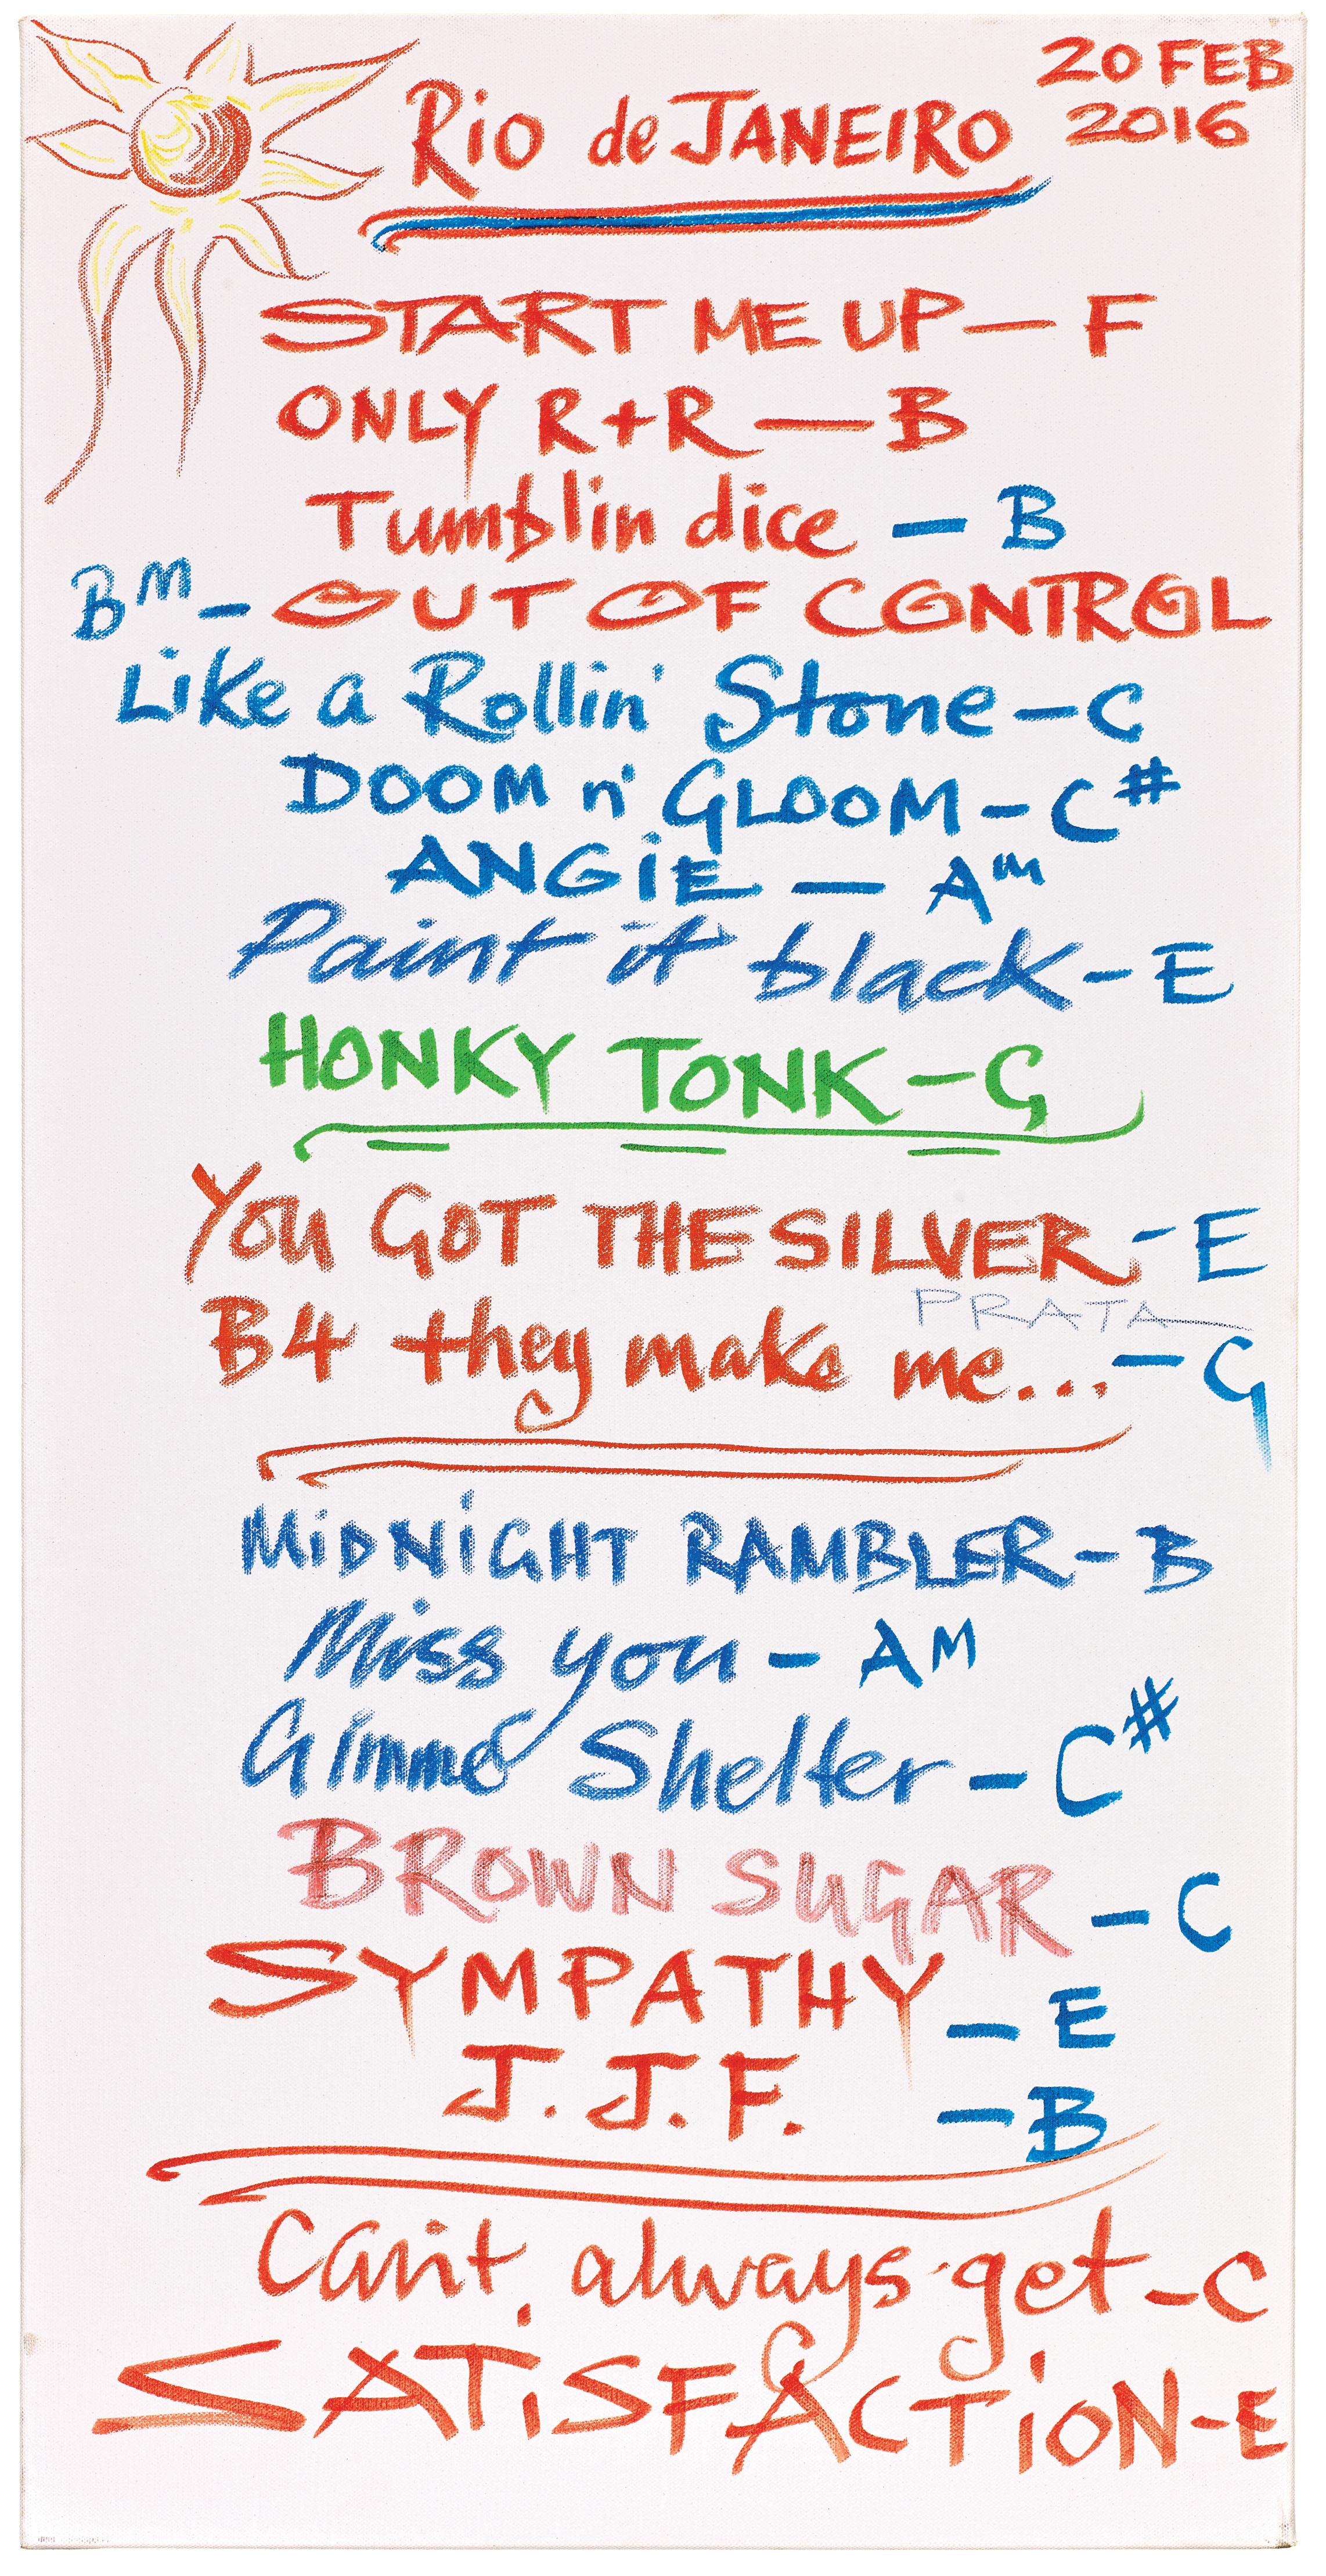 20 FEB
2016
Rio de JANEIRO
START ME UP — F
ONLY R+R — B
Tumblin dice — B
BM — OUT OF CONTROL
Like a Rollin' Stone — C
DOOM n' GLOOM — C#
ANGiE — Am
Paint it black — E
HONKY TONK — G
You GOT THE SILVER — E
PRATA
B4 they make me... — G
MiDNiGHT RAMBLER — B
Miss you — AM
Gimme Shelter — C#
BROWN SUGAR — C
SYMPATHY — E
J.J.F. — B
Can't always get — C
SATiSFACTiON — E